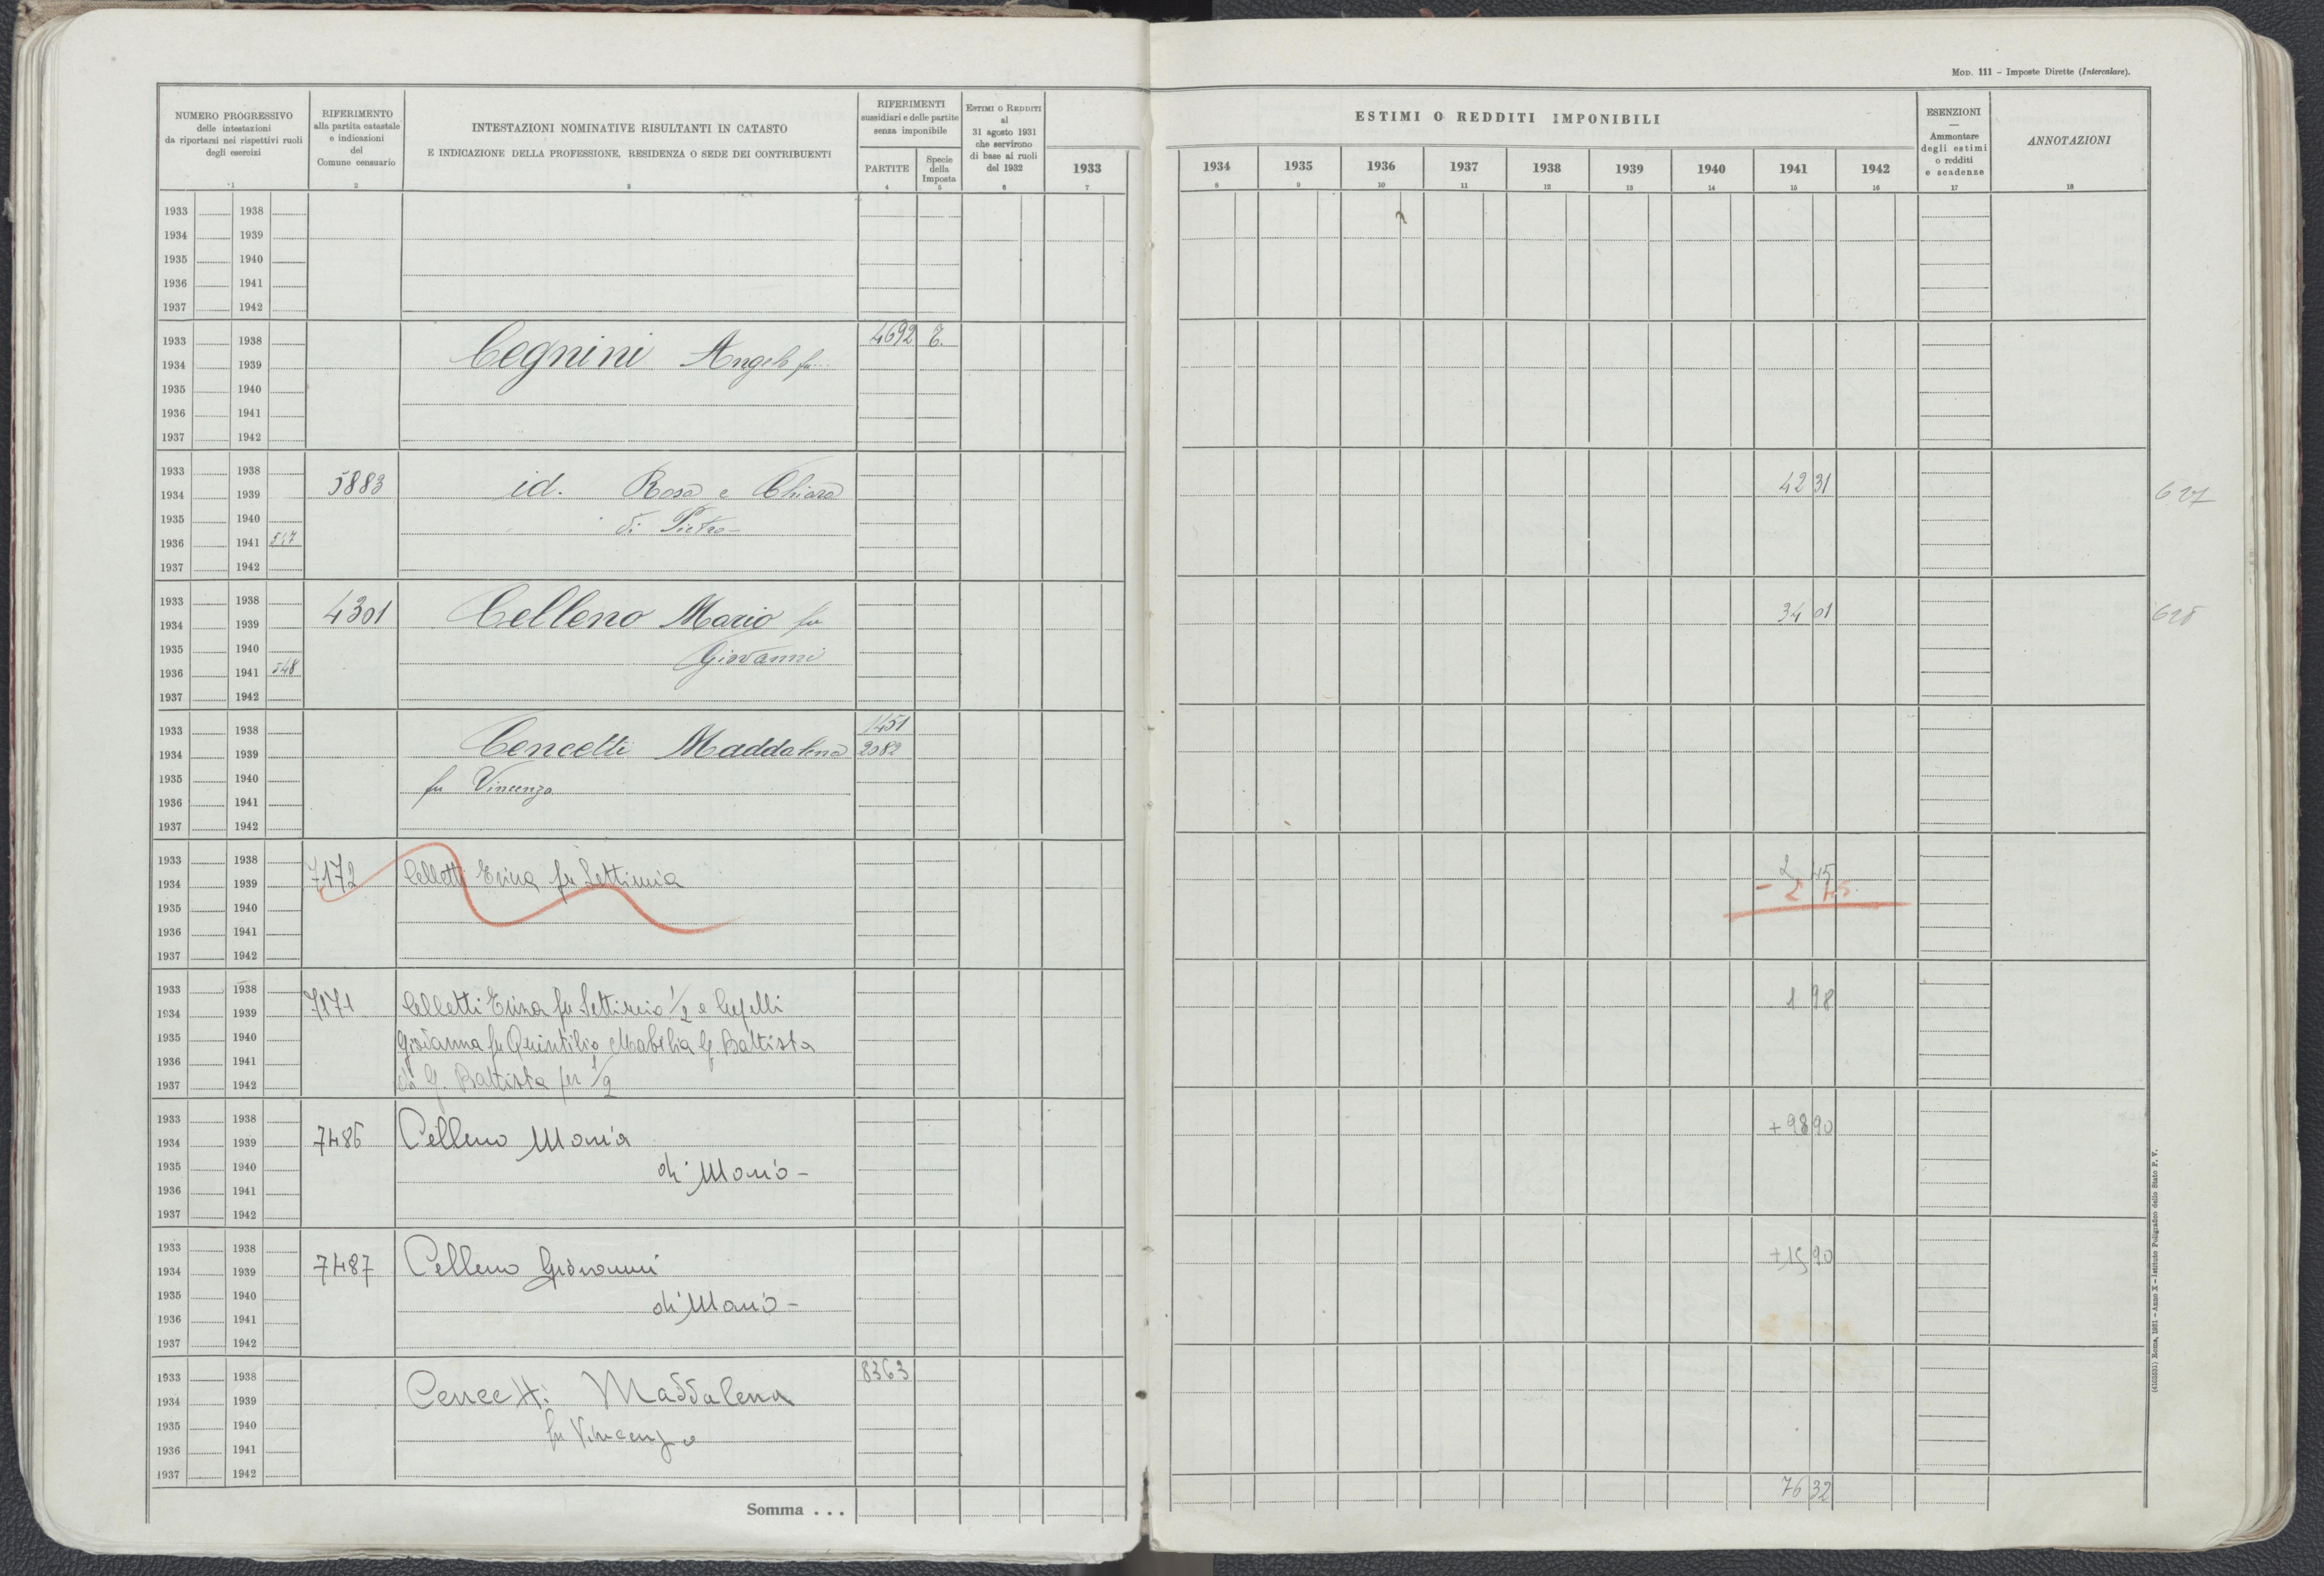 MOD. 111 – Imposte Dirette (Intercalare).
NUMERO PROGRESSIVO
delle intestazioni
da riportarsi nei rispettivi ruoli
degli esercizi
RIFERIMENTO
alla partita catastale
e indicazioni
del
Comune censuario
INTESTAZIONI NOMINATIVE RISULTANTI IN CATASTO
E INDICAZIONE DELLA PROFESSIONE, RESIDENZA O SEDE DEI CONTRIBUENTI
RIFERIMENTI
sussidiari e delle partite
senza imponibile
PARTITE
Specie
della
Imposta
ESTIMI O REDDITI
al
31 agosto 1931
che servirono
di base ai ruoli
del 1932
ESTIMI O REDDITI IMPONIBILI
1933 1934 1935 1936 1937 1938 1939 1940 1941 1942
ESENZIONI
—
Ammontare
degli estimi
o redditi
e scadenze
ANNOTAZIONI
1 2 3 4 5 6 7 8 9 10 11 12 13 14 15 16 17 18
1933 1938
1934 1939
1935 1940
1936 1941
1937 1942
1933 1938 4692 T.
1934 1939 Cegnini Angelo fu...
1935 1940
1936 1941
1937 1942
1933 1938
1934 1939 5883 id. Rosa e Chiara 42 31 627
1935 1940 di Pietro
1936 1941 547
1937 1942
1933 1938
1934 1939 4301 Celleno Mario fu 34 01 628
1935 1940 Giovanni
1936 1941 548
1937 1942
1933 1938 1451
1934 1939 Cencetti Maddalena 2082
1935 1940 fu Vincenzo
1936 1941
1937 1942
1933 1938
1934 1939 7172 Celletti Erina fu Settimia 2 45
1935 1940 - 2 45
1936 1941
1937 1942
1933 1938
1934 1939 7171 Celletti Erina fu Settimio 1/2 e 1 98
1935 1940 Giovanna fu Quintilio G. Battista
1936 1941
1937 1942 di G. Battista per 1/2
1933 1938
1934 1939 7486 Celleno Maria + 98 90
1935 1940 di Mario –
1936 1941
1937 1942
1933 1938
1934 1939 7487 Celleno Giovanni + 15 90
1935 1940
1936 1941 di Mario –
1937 1942
1933 1938 8363
1934 1939 Cencetti Maddalena
1935 1940 fu Vincenzo
1936 1941
1937 1942
Somma . . . 76 32
(4103331) Roma, 1931 – Anno X – Istituto Poligrafico dello Stato P. V.